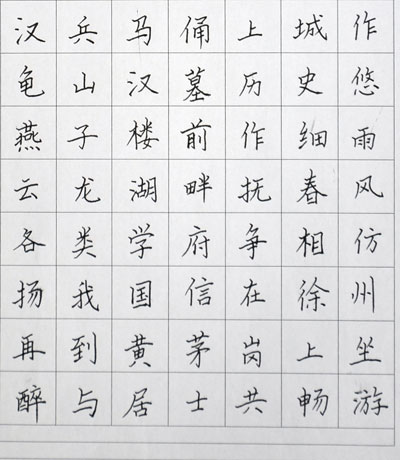 汉兵马俑上城作
龟山汉墓历史悠
燕子楼前作细雨
云龙湖畔抚春风
各类学府争相仿
扬我国信在徐州
再到黄茅岗上坐
醉与居士共畅游